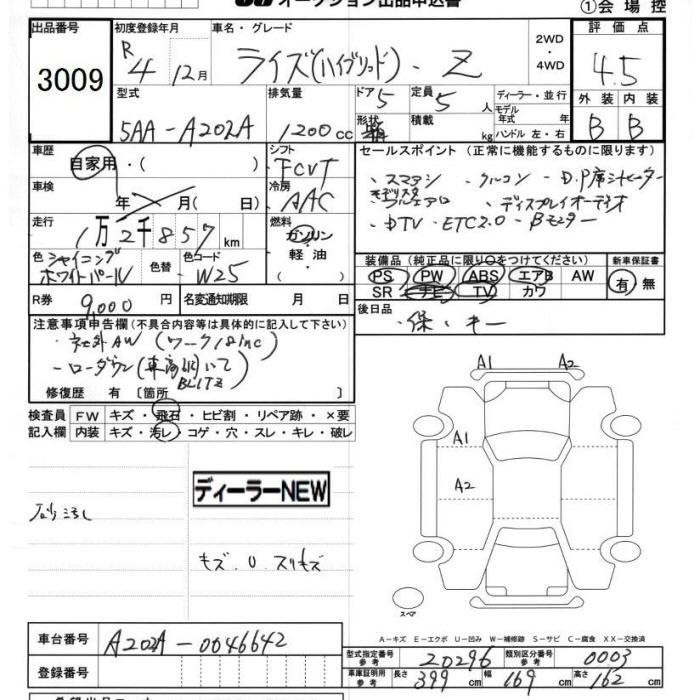 オークション出品申込書
①会場控
出品番号
3009
初度登録年月
R 4 12月
車名・グレード
ライズ(ハイブリッド)・Z
2WD
・
4WD
評価点
4.5
外装 内装
B B
型式
5AA-A202A
排気量
1200cc
ドア 5
定員 5人
形状
積載 kg
ディーラー・並行
モデル年式 年
ハンドル 左・右
車歴
自家用・( )
シフト
FCVT
車検
年 月( 日)
冷房
AAC
走行
1万2千857km
燃料
ガソリン
・
軽油
・
( )
色 シャイニングホワイトパール
色替
色コード
W25
R券 9,000円
名変通知期限 月 日
セールスポイント(正常に機能するものに限ります)
・スマアシ ・クルコン ・D.P席シートヒーター
・モデリスタフルエアロ ・ディスプレイオーディオ
・DTV・ETC2.0・Bモニター
装備品(純正品に限り○をつけてください)
PS PW ABS エアB AW
SR ナビ TV カワ
新車保証書
有・無
後日品
・保・キー
注意事項申告欄(不具合内容等は具体的に記入して下さい)
・社外AW(ワーク18inc)
・ローダウン(車高調 BLITZ)
修復歴 有〔箇所
検査員記入欄
FW キズ・飛石・ヒビ割・リペア跡・×要
内装 キズ・汚レ・コゲ・穴・スレ・キレ・破レ
ディーラーNEW
キズ.U.スリキズ
A1 A2
A1
A2
スペア
A-キズ E-エクボ U-凹み W-補修跡 S-サビ C-腐食 XX-交換済
車台番号 A202A-0046642
登録番号
型式指定番号 参考 20296
類別区分番号 参考 0003
車庫証明用 参考 長さ 399cm 幅 169cm 高さ 162cm